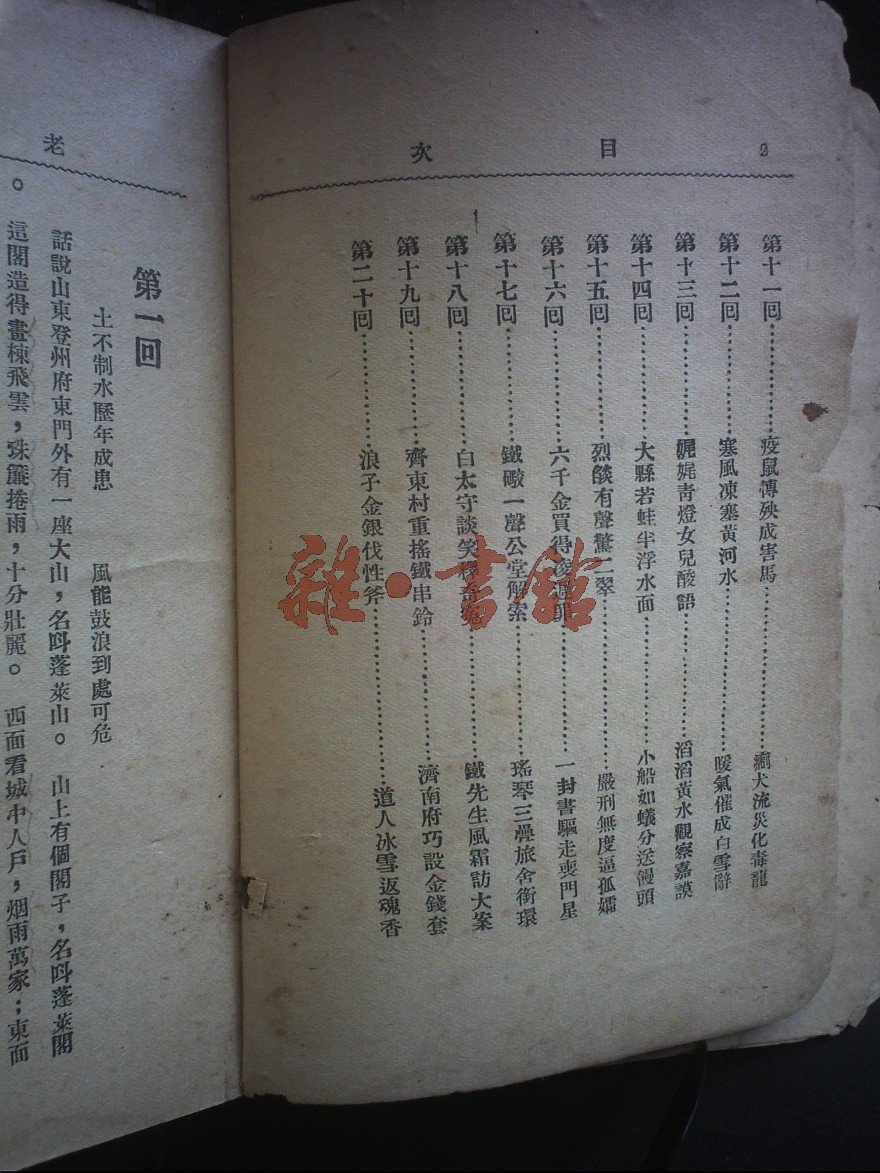 2 目 次
第十一回………疫鼠傳殃成害馬………犬流災化毒龍
第十二回………寒風凍塞黃河水………暖氣催成白雪辭
第十三回………娓娓青燈女兒酸語………滔滔黃水觀察嘉謨
第十四回………大縣若蛙半浮水面………小船如蟻分送饅頭
第十五回………烈燄有聲驚二翠………嚴刑無度逼孤孀
第十六回………六千金買得凌遲罪………一封書驅走喪門星
第十七回………鐵礮一聲公堂解索………瑤琴三疊旅舍銜環
第十八回………白太守談笑釋奇冤………鐵先生風霜訪大案
第十九回………齊東村重搖鐵串鈴………濟南府巧設金錢套
第二十回………浪子金銀伐性斧………道人冰雪返魂香
雜·書館
老
第一回
土不制水歷年成患 風能鼓浪到處可危
話說山東登州府東門外有一座大山，名叫蓬萊山。山上有個閣子，名叫蓬萊閣
。這閣造得畫棟飛雲，珠簾捲雨，十分壯麗。西面看城中人戶，烟雨萬家；東面